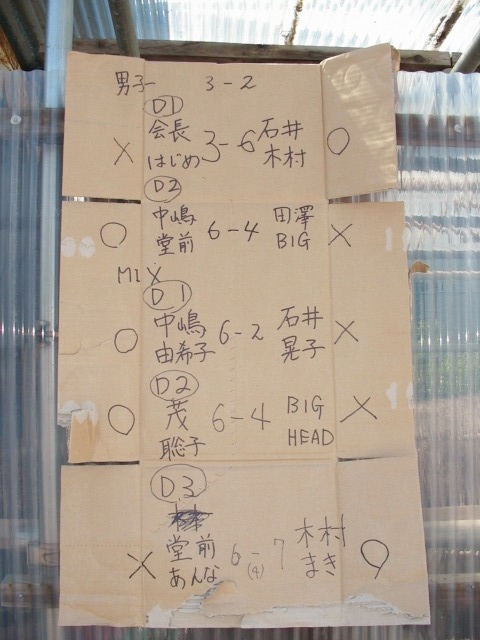 男子 3-2
D1
会長 3-6 石井
× はじめ 木村 ○
D2
中嶋 田澤
○ 堂前 6-4 BIG ×
MIX
D1
中嶋 6-2 石井
○ 由希子 晃子 ×
D2
茂 6-4 BIG
○ 聡子 HEAD ×
D3
堂前 6-7 木村
× あんな (4) まき ○